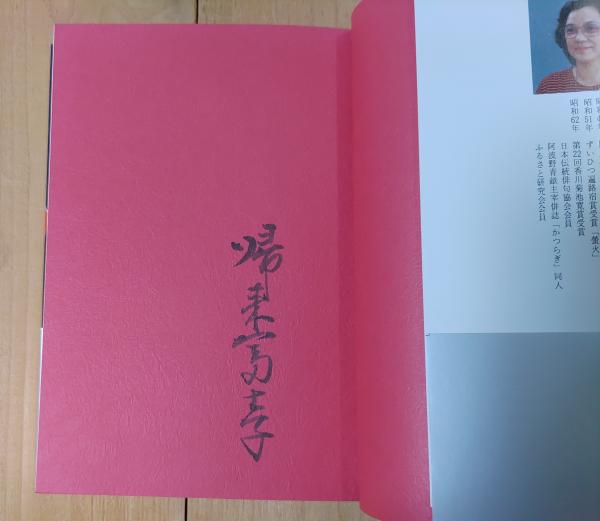 昭和51年 ずいひつ遍路宿賞受賞「螢火」
昭和62年 第22回香川菊池寛賞受賞
日本伝統俳句協会会員
阿波野青畝主宰俳誌「かつらぎ」同人
ふるさと研究会会員
帰来富士子